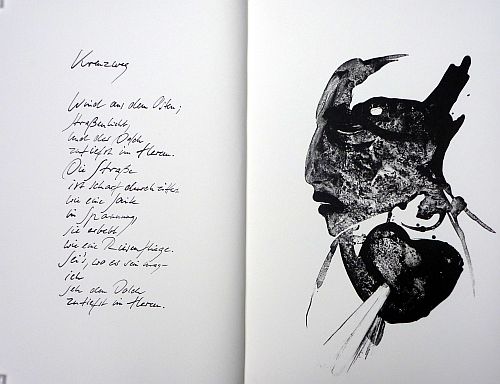 Kreuzweg
Wind aus dem Osten;
Straßenlicht,
und der Dolch
zutiefst im Herzen.
Die Straße
ist scharf durchzittert
wie eine Saite
in Spannung,
sie erbebt
wie eine Riesenfliege.
Sei's, wo es sein mag-
ich
seh den Dolch
zutiefst im Herzen.